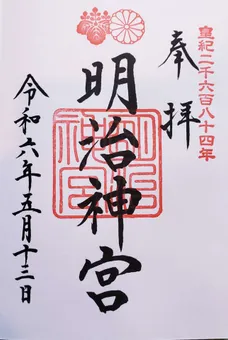 皇紀二千六百八十四年
奉拝
明治神宮
明治神宮
令和六年五月十三日